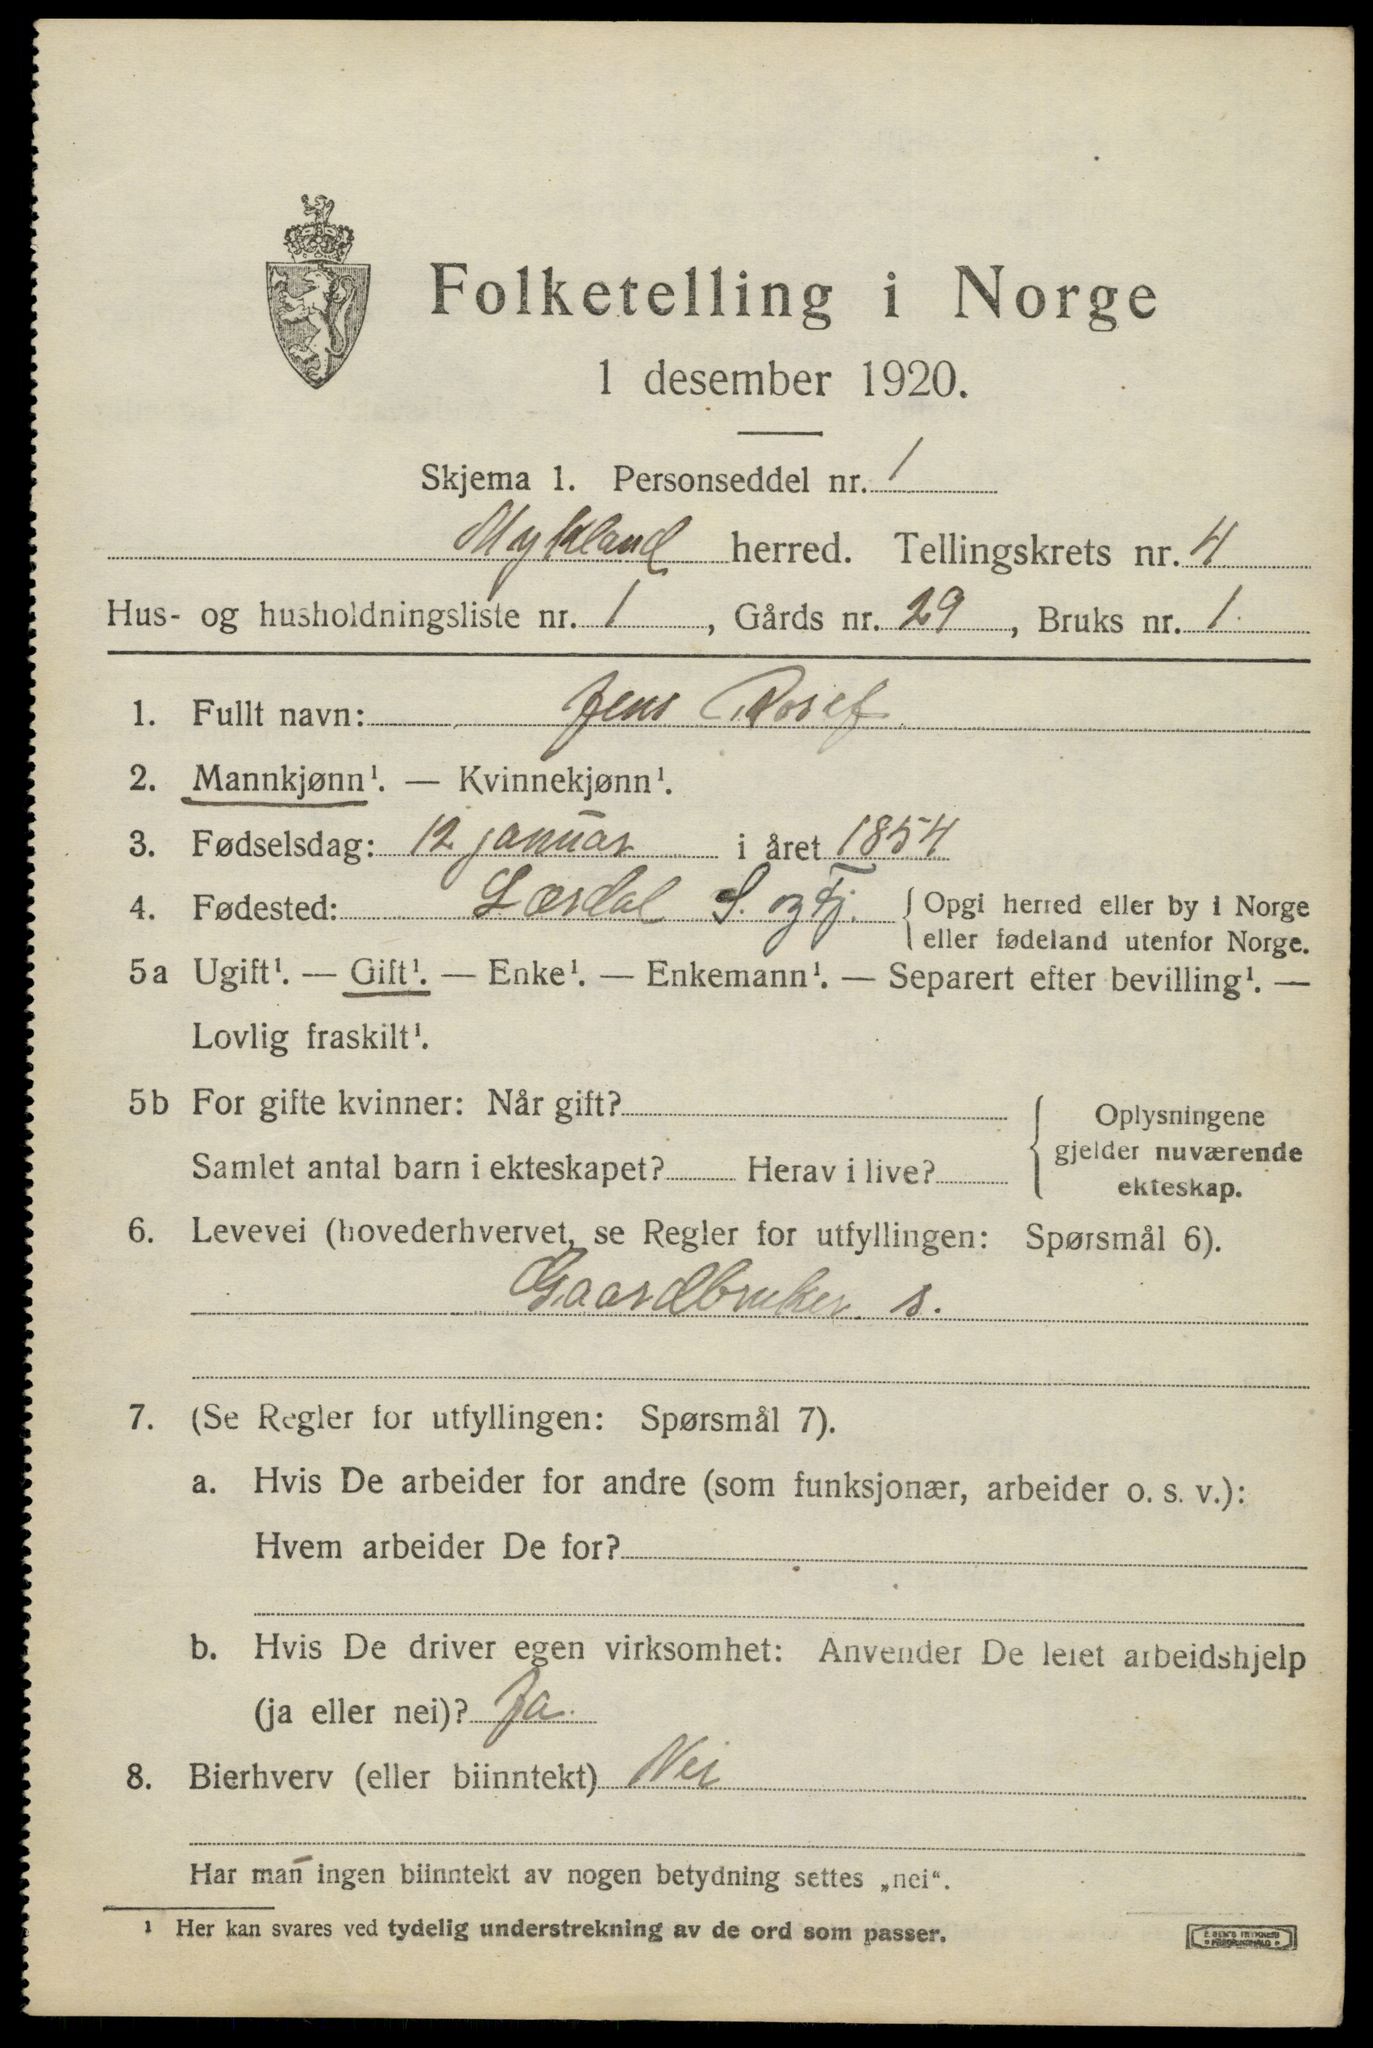 Folketelling i Norge
1 desember 1920.
Skjema 1. Personseddel nr. 1
Mykland herred. Tellingskrets nr. 4
Hus- og husholdningsliste nr. 1, Gårds nr. 29, Bruks nr. 1.
1. Fullt navn: Jens Rosef
2. Mannkjønn¹. — Kvinnekjønn¹.
3. Fødselsdag: 12 januar i året 1854
4. Fødested: Lærdal S. og Fj. { Opgi herred eller by i Norge
eller fødeland utenfor Norge.
5a Ugift¹. — Gift¹. — Enke¹. — Enkemann¹. — Separert efter bevilling¹. —
Lovlig fraskilt¹.
5b For gifte kvinner: Når gift?
Samlet antal barn i ekteskapet? Herav i live?
{ Oplysningene
gjelder nuværende
ekteskap.
6. Levevei (hovederhvervet, se Regler for utfyllingen: Spørsmål 6).
Gaardbruker s.
7. (Se Regler for utfyllingen: Spørsmål 7).
a. Hvis De arbeider for andre (som funksjonær, arbeider o. s. v.):
Hvem arbeider De for?
b. Hvis De driver egen virksomhet: Anvender De leiet arbeidshjelp
(ja eller nei)? Ja.
8. Bierhverv (eller biinntekt) Nei
Har man ingen biinntekt av nogen betydning settes „nei“.
¹ Her kan svares ved tydelig understrekning av de ord som passer.